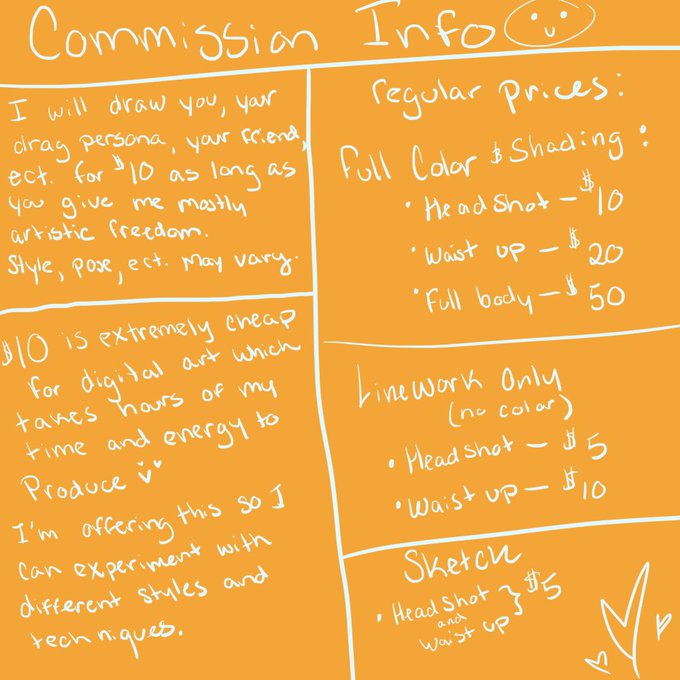 Commission Info
I will draw you, your
drag persona, your friend,
ect. for $10 as long as
you give me mostly
artistic freedom.
Style, pose, ect. may vary.
$10 is extremely cheap
for digital art which
takes hours of my
time and energy to
Produce
I'm offering this so I
can experiment with
different styles and
techniques.
regular prices:
Full Color & Shading:
• Headshot - $10
• Waist up - $20
• Full body - $50
Linework Only
(no color)
• Headshot - $5
• Waist up - $10
Sketch
• Headshot
and
Waist up } $5